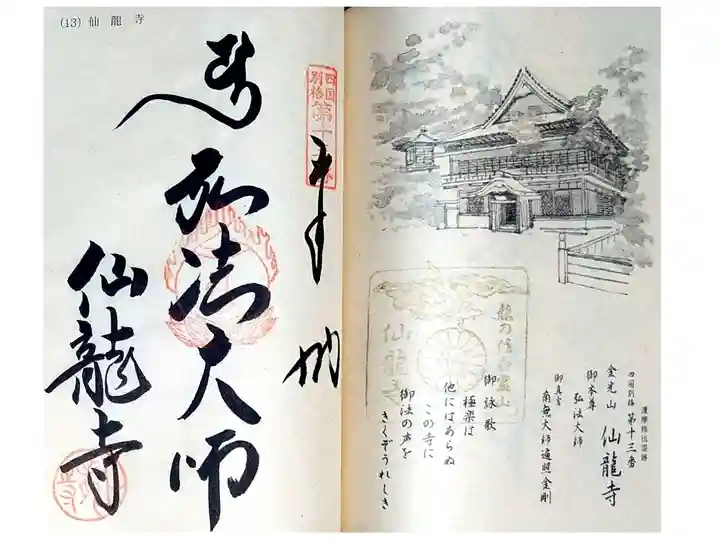 (13) 仙龍寺
四国
別格
第十三番
奉
弘法大師
仙龍寺
護摩格法霊跡
四国別格 第十三番
金光山 仙龍寺
御本尊
弘法大師
御真言
南無大師遍照金剛
御詠歌
極楽は
他にはあらぬ
この寺に
御法の声を
きくぞうれしき
仙龍寺